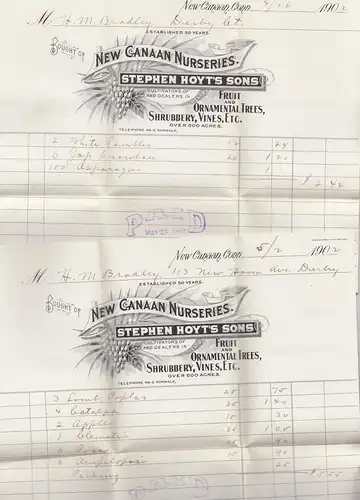 New Canaan, Conn. 1902
M H. M Bradley Derby Ct.
ESTABLISHED 50 YEARS.
BOUGHT OF
NEW CANAAN NURSERIES.
STEPHEN HOYT'S SONS
CULTIVATORS OF
AND DEALERS IN
FRUIT
AND
ORNAMENTAL TREES,
SHRUBBERY, VINES, ETC.
OVER 500 ACRES.
TELEPHONE 48-2 NORWALK.
2 White 12 24
6 Jap Snowball 20 1 20
100 Asparagus 1
$2 44
New Canaan, Conn. 5/2 1902
M H. M Bradley, 113 New Haven Ave. Derby
ESTABLISHED 50 YEARS.
BOUGHT OF
NEW CANAAN NURSERIES.
STEPHEN HOYT'S SONS
CULTIVATORS OF
AND DEALERS IN
FRUIT
AND
ORNAMENTAL TREES,
SHRUBBERY, VINES, ETC.
OVER 500 ACRES.
TELEPHONE 48-2 NORWALK.
3 Lomb Poplar 25 75
4 Catalpa 35 1 40
2 Apples 15 30
Clematis
Ampelopsis
Packing 25